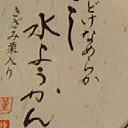 くちどけなめらか
水ようかん
きざみ栗入り